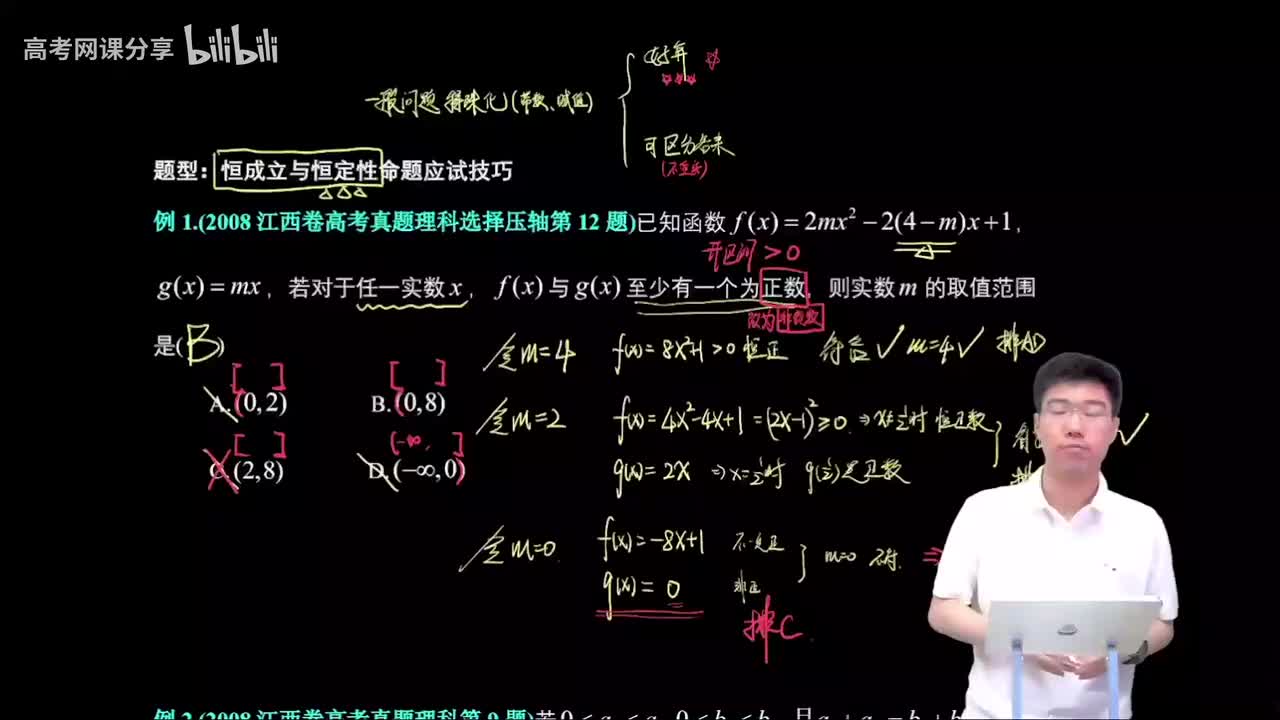 高考网课分享 bilibili
好算
一般问题 特殊化(带数、赋值)
可区分答案
题型：恒成立与恒定性命题应试技巧
例 1.(2008 江西卷高考真题理科选择压轴第 12 题)已知函数 f(x)=2mx²-2(4-m)x+1，
开区间>0
g(x)=mx，若对于任一实数 x，f(x)与 g(x)至少有一个为正数，则实数 m 的取值范围
改为非负数
是(B)
令m=4 f(x)=8x²+1>0 恒正 符合✓ m=4✓ 排AD
[ ] [ ]
A.(0,2) B.(0,8)
令m=2 f(x)=4x²-4x+1=(2x-1)²≥0
[ ] (-∞, ]
C.(2,8) D.(-∞,0)
g(x)=2x ⇒x=½时 g(½)是正数
令m=0 f(x)=-8x+1 不一定正
m=0 不对.⇒
g(x)=0 非正
排C.
例 2.(2008 江西卷高考真题理科第 9 题)若